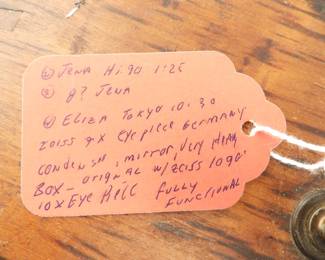 ① Jena HI 90 1:25
② 8? Jena
④ Eliza Tokyo 10.30
Zeiss 8x eyepiece Germany
Condenser, mirror, very heavy
Box - original w/ zeiss logo
10x Eye Piece Fully
Functional